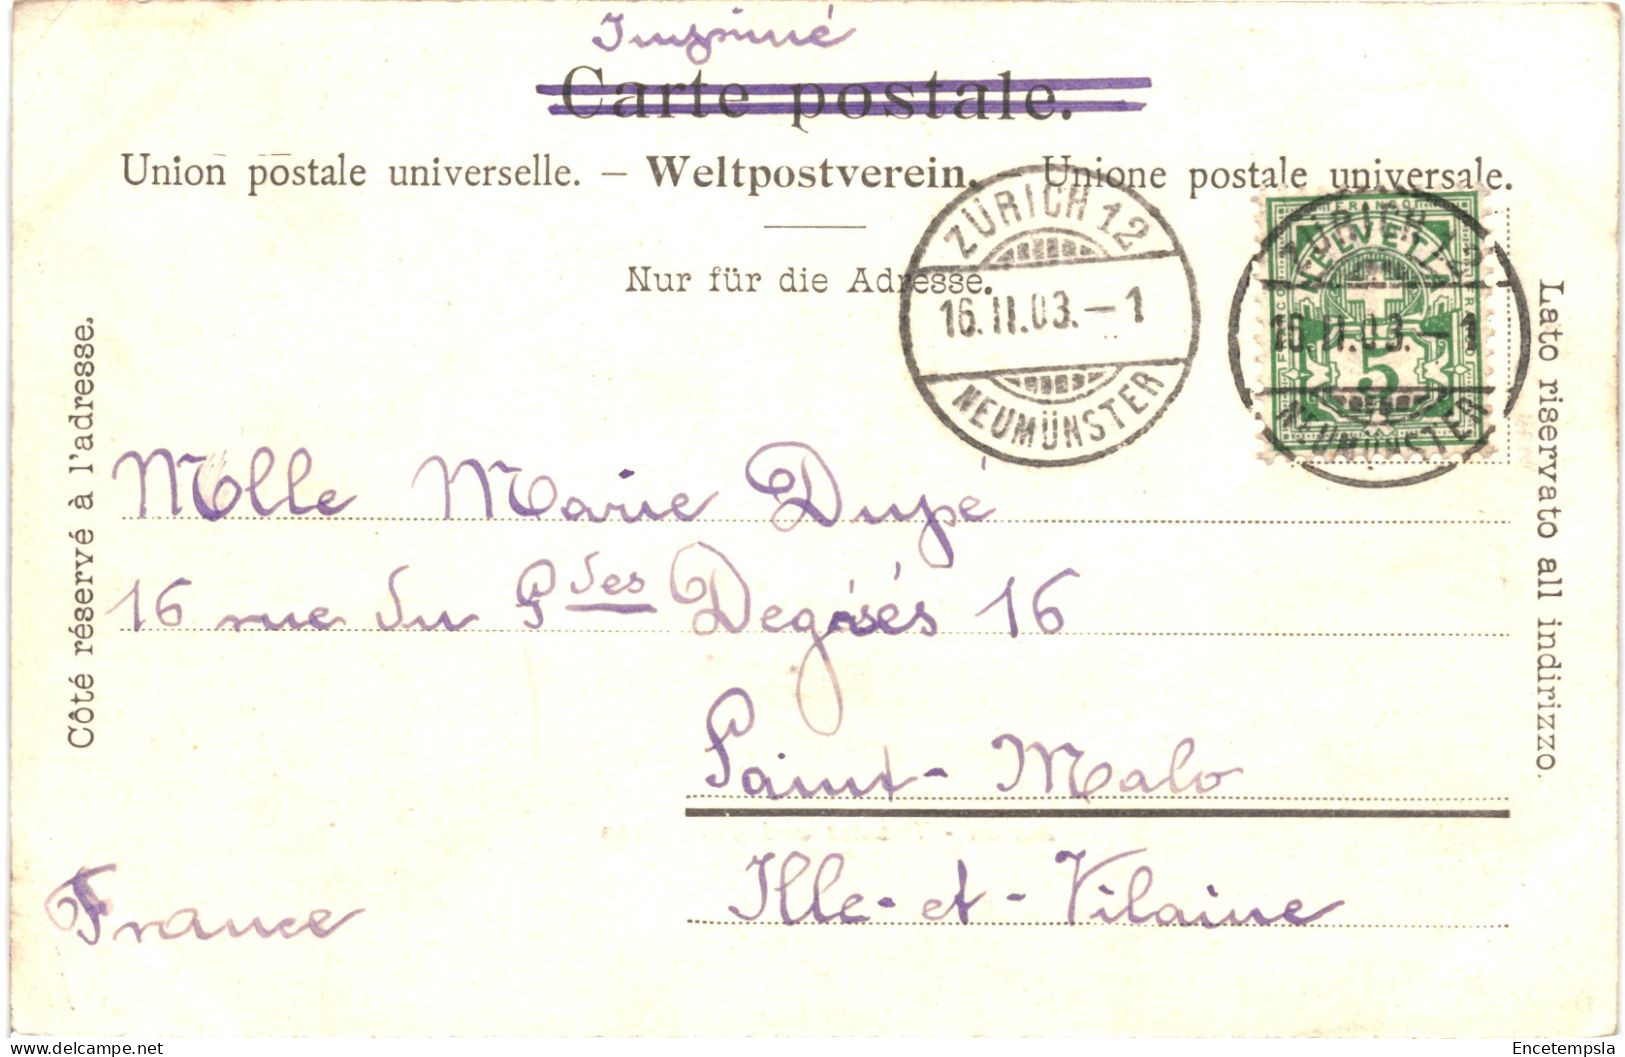 Imprimé
Carte postale.
Union postale universelle. — Weltpostverein. — Unione postale universale.
Nur für die Adresse.
Côté réservé à l'adresse.
Lato riservato all indirizzo.
ZÜRICH 12
16.II.03.—1
NEUMÜNSTER
FRANCO
HELVETIA
5
ZÜRICH 12
16.II.03.—1
NEUMÜNSTER
Mlle Marie Dupé
16 rue du Pdes Degrés 16
Saint-Malo
Ille-et-Vilaine
France
www.delcampe.net
Encetempsla